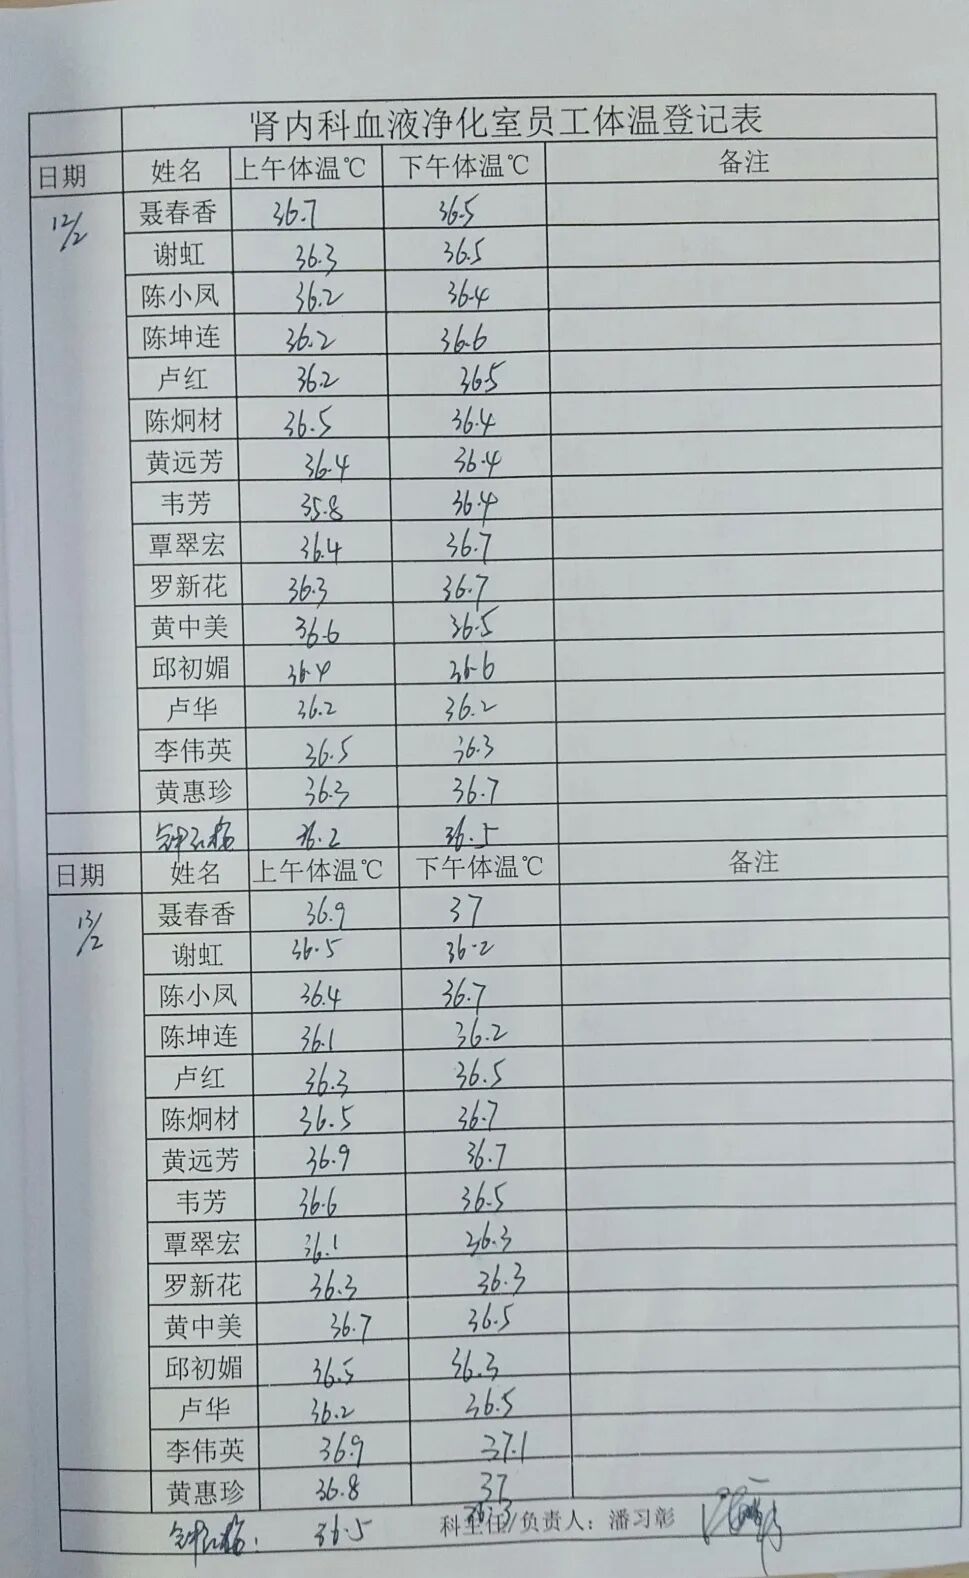 肾内科血液净化室员工体温登记表
日期 姓名 上午体温℃ 下午体温℃ 备注
12/2 聂春香 36.7 36.5
谢虹 36.3 36.5
陈小凤 36.2 36.4
陈坤连 36.2 36.6
卢红 36.2 36.5
陈炯材 36.5 36.4
黄远芳 36.4 36.4
韦芳 35.8 36.4
覃翠宏 36.4 36.7
罗新花 36.3 36.7
黄中美 36.6 36.5
邱初媚 36.4 36.6
卢华 36.2 36.2
李伟英 36.5 36.3
黄惠珍 36.3 36.7
36.2 36.5
日期 姓名 上午体温℃ 下午体温℃ 备注
13/2 聂春香 36.9 37
谢虹 36.5 36.2
陈小凤 36.4 36.7
陈坤连 36.1 36.2
卢红 36.3 36.5
陈炯材 36.5 36.7
黄远芳 36.9 36.7
韦芳 36.6 36.5
覃翠宏 36.1 36.3
罗新花 36.3 36.3
黄中美 36.7 36.5
邱初媚 36.5 36.3
卢华 36.2 36.5
李伟英 36.9 37.1
黄惠珍 36.8 37
36.5 36.3 科主任/负责人：潘习彰